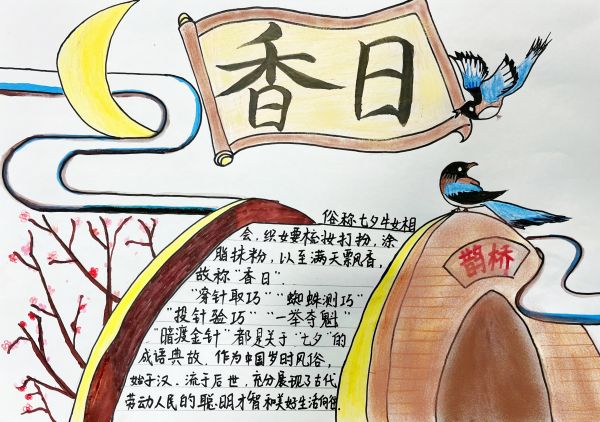 香日
鹊桥
俗称七夕牛女相
会，织女要梳妆打扮，涂
脂抹粉，以至满天飘香，
故称“香日”.
“穿针取巧”“蜘蛛测巧”
“投针验巧”“一举夺魁”
“暗渡金针”都是关于“七夕”的
成语典故、作为中国岁时风俗，
始于汉、流于后世，充分展现了古代
劳动人民的聪明才智和美好生活向往.